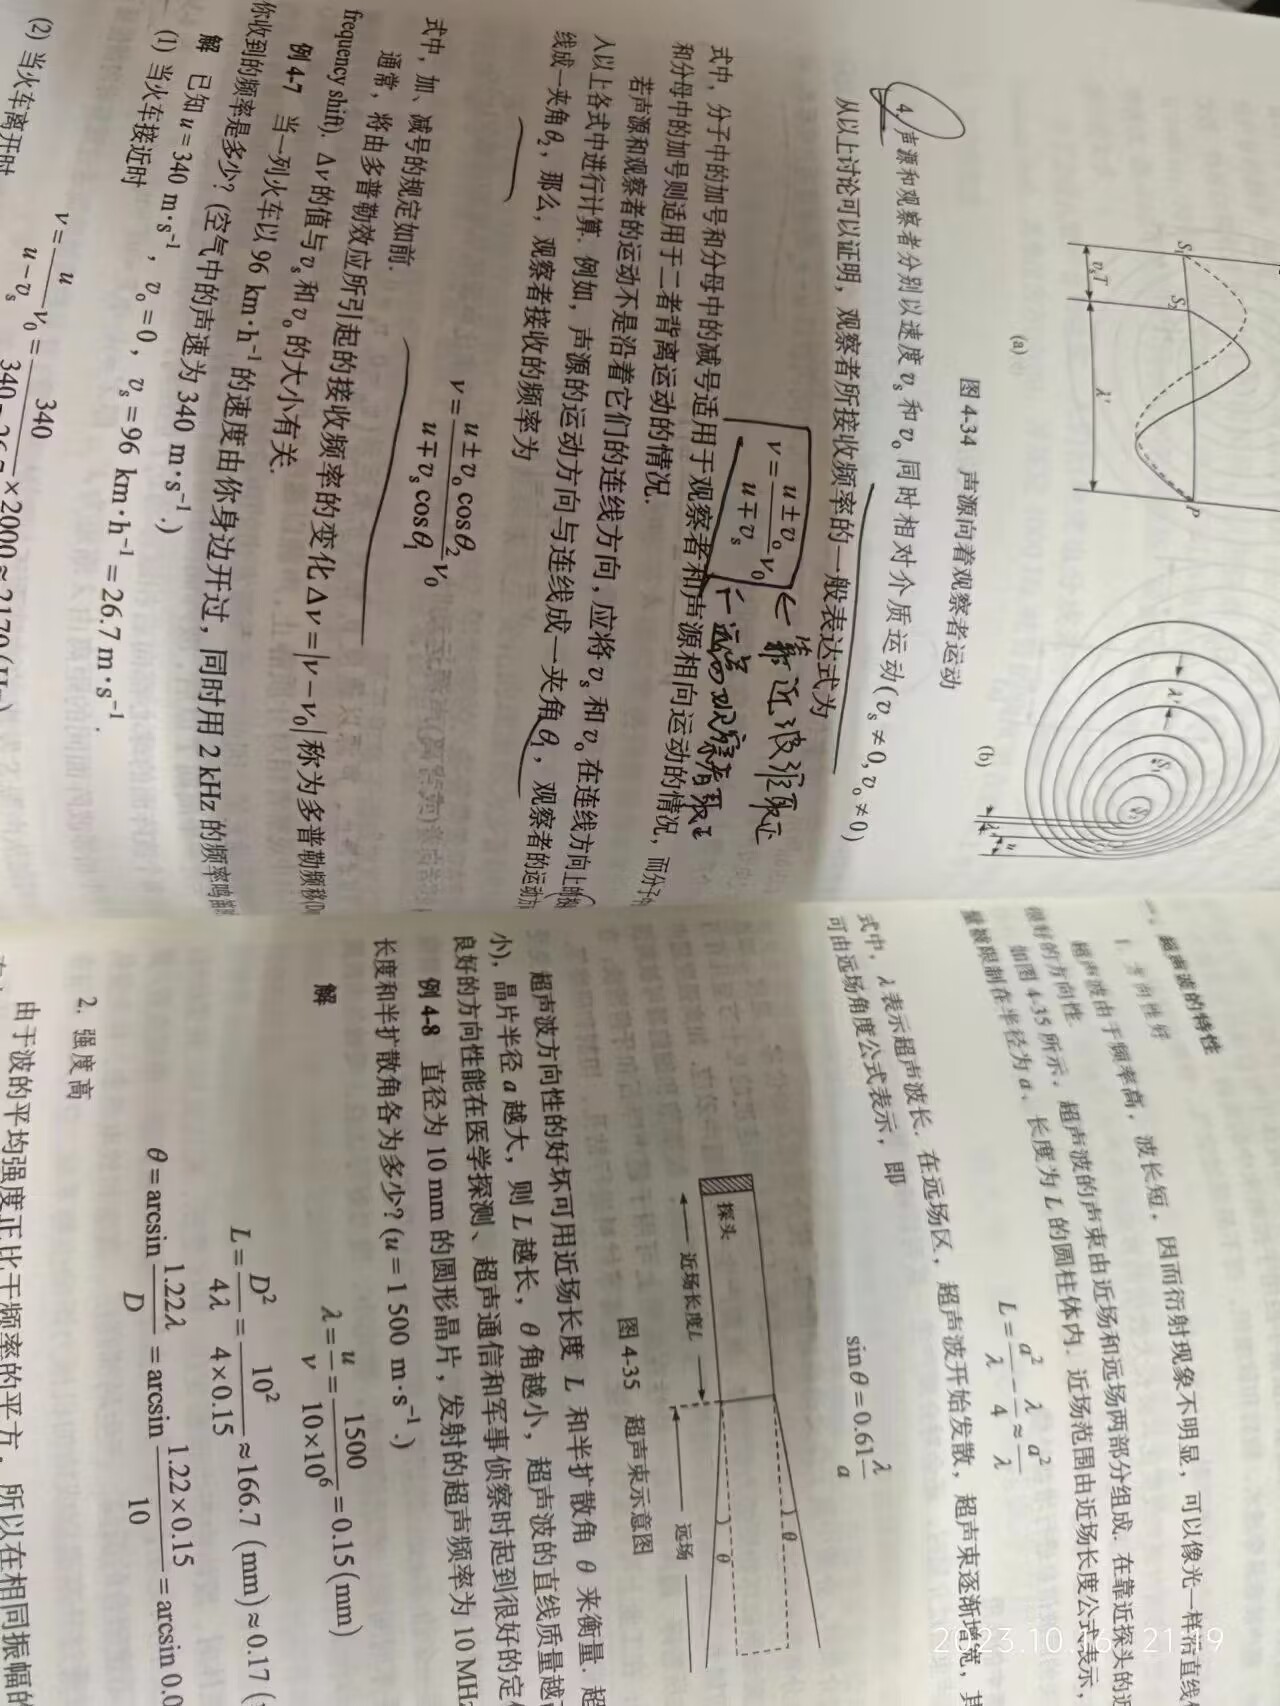 S₁
S₁'
P
v_sT
λ'
(a)
(b)
图 4-34 声源向着观察者运动
4. 声源和观察者分别以速度 v_s 和 v_o 同时相对介质运动(v_s≠0,v_o≠0)
从以上讨论可以证明，观察者所接收频率的一般表达式为
ν=(u±v_o)/(u∓v_s) ν₀
← 靠近波源取正
← 远离观察者取正
式中，分子中的加号和分母中的减号适用于观察者和声源相向运动的情况，而分子
和分母中的加号则适用于二者背离运动的情况.
若声源和观察者的运动不是沿着它们的连线方向，应将 v_s 和 v_o 在连线方向上的
入以上各式中进行计算. 例如，声源的运动方向与连线成一夹角 θ₁，观察者的运动方
线成一夹角 θ₂，那么，观察者接收的频率为
ν=(u±v_o cosθ₂)/(u∓v_s cosθ₁) ν₀
式中，加、减号的规定如前.
通常，将由多普勒效应所引起的接收频率的变化 Δν=|ν−ν₀| 称为多普勒频移(Do
frequency shift). Δν 的值与 v_s 和 v_o 的大小有关.
例 4-7 当一列火车以 96 km·h⁻¹ 的速度由你身边开过，同时用 2 kHz 的频率鸣笛
你收到的频率是多少? (空气中的声速为 340 m·s⁻¹.)
解 已知 u=340 m·s⁻¹，v_o=0，v_s=96 km·h⁻¹=26.7 m·s⁻¹.
(1) 当火车接近时
ν=u/(u−v_s) ν₀=340/(340−26.7)×2000≈2170(Hz)
(2) 当火车离开时
一、超声波的特性
1. 方向性好
超声波由于频率高，波长短，因而衍射现象不明显，可以像光一样沿直线
很好的方向性.
如图 4-35 所示，超声波的声束由近场和远场两部分组成. 在靠近探头的近
量被限制在半径为 a、长度为 L 的圆柱体内. 近场范围由近场长度公式表示，
L=a²/λ−λ/4≈a²/λ
式中，λ 表示超声波长. 在远场区，超声波开始发散，超声束逐渐增宽，其
可由远场角度公式表示，即
sinθ=0.61 λ/a
探头
近场长度L
远场
θ
θ
图 4-35 超声束示意图
超声波方向性的好坏可用近场长度 L 和半扩散角 θ 来衡量. 超
小)，晶片半径 a 越大，则 L 越长，θ 角越小，超声波的直线质量越
良好的方向性能在医学探测、超声通信和军事侦察时起到很好的定
例 4-8 直径为 10 mm 的圆形晶片，发射的超声频率为 10 MHz
长度和半扩散角各为多少? (u=1 500 m·s⁻¹.)
解
λ=u/ν=1500/(10×10⁶)=0.15(mm)
L=D²/4λ=10²/(4×0.15)≈166.7 (mm)≈0.17(
θ=arcsin 1.22λ/D=arcsin (1.22×0.15)/10=arcsin 0.0
2. 强度高
由于波的平均强度正比于频率的平方，所以在相同振幅的
2023.10.16 21:19